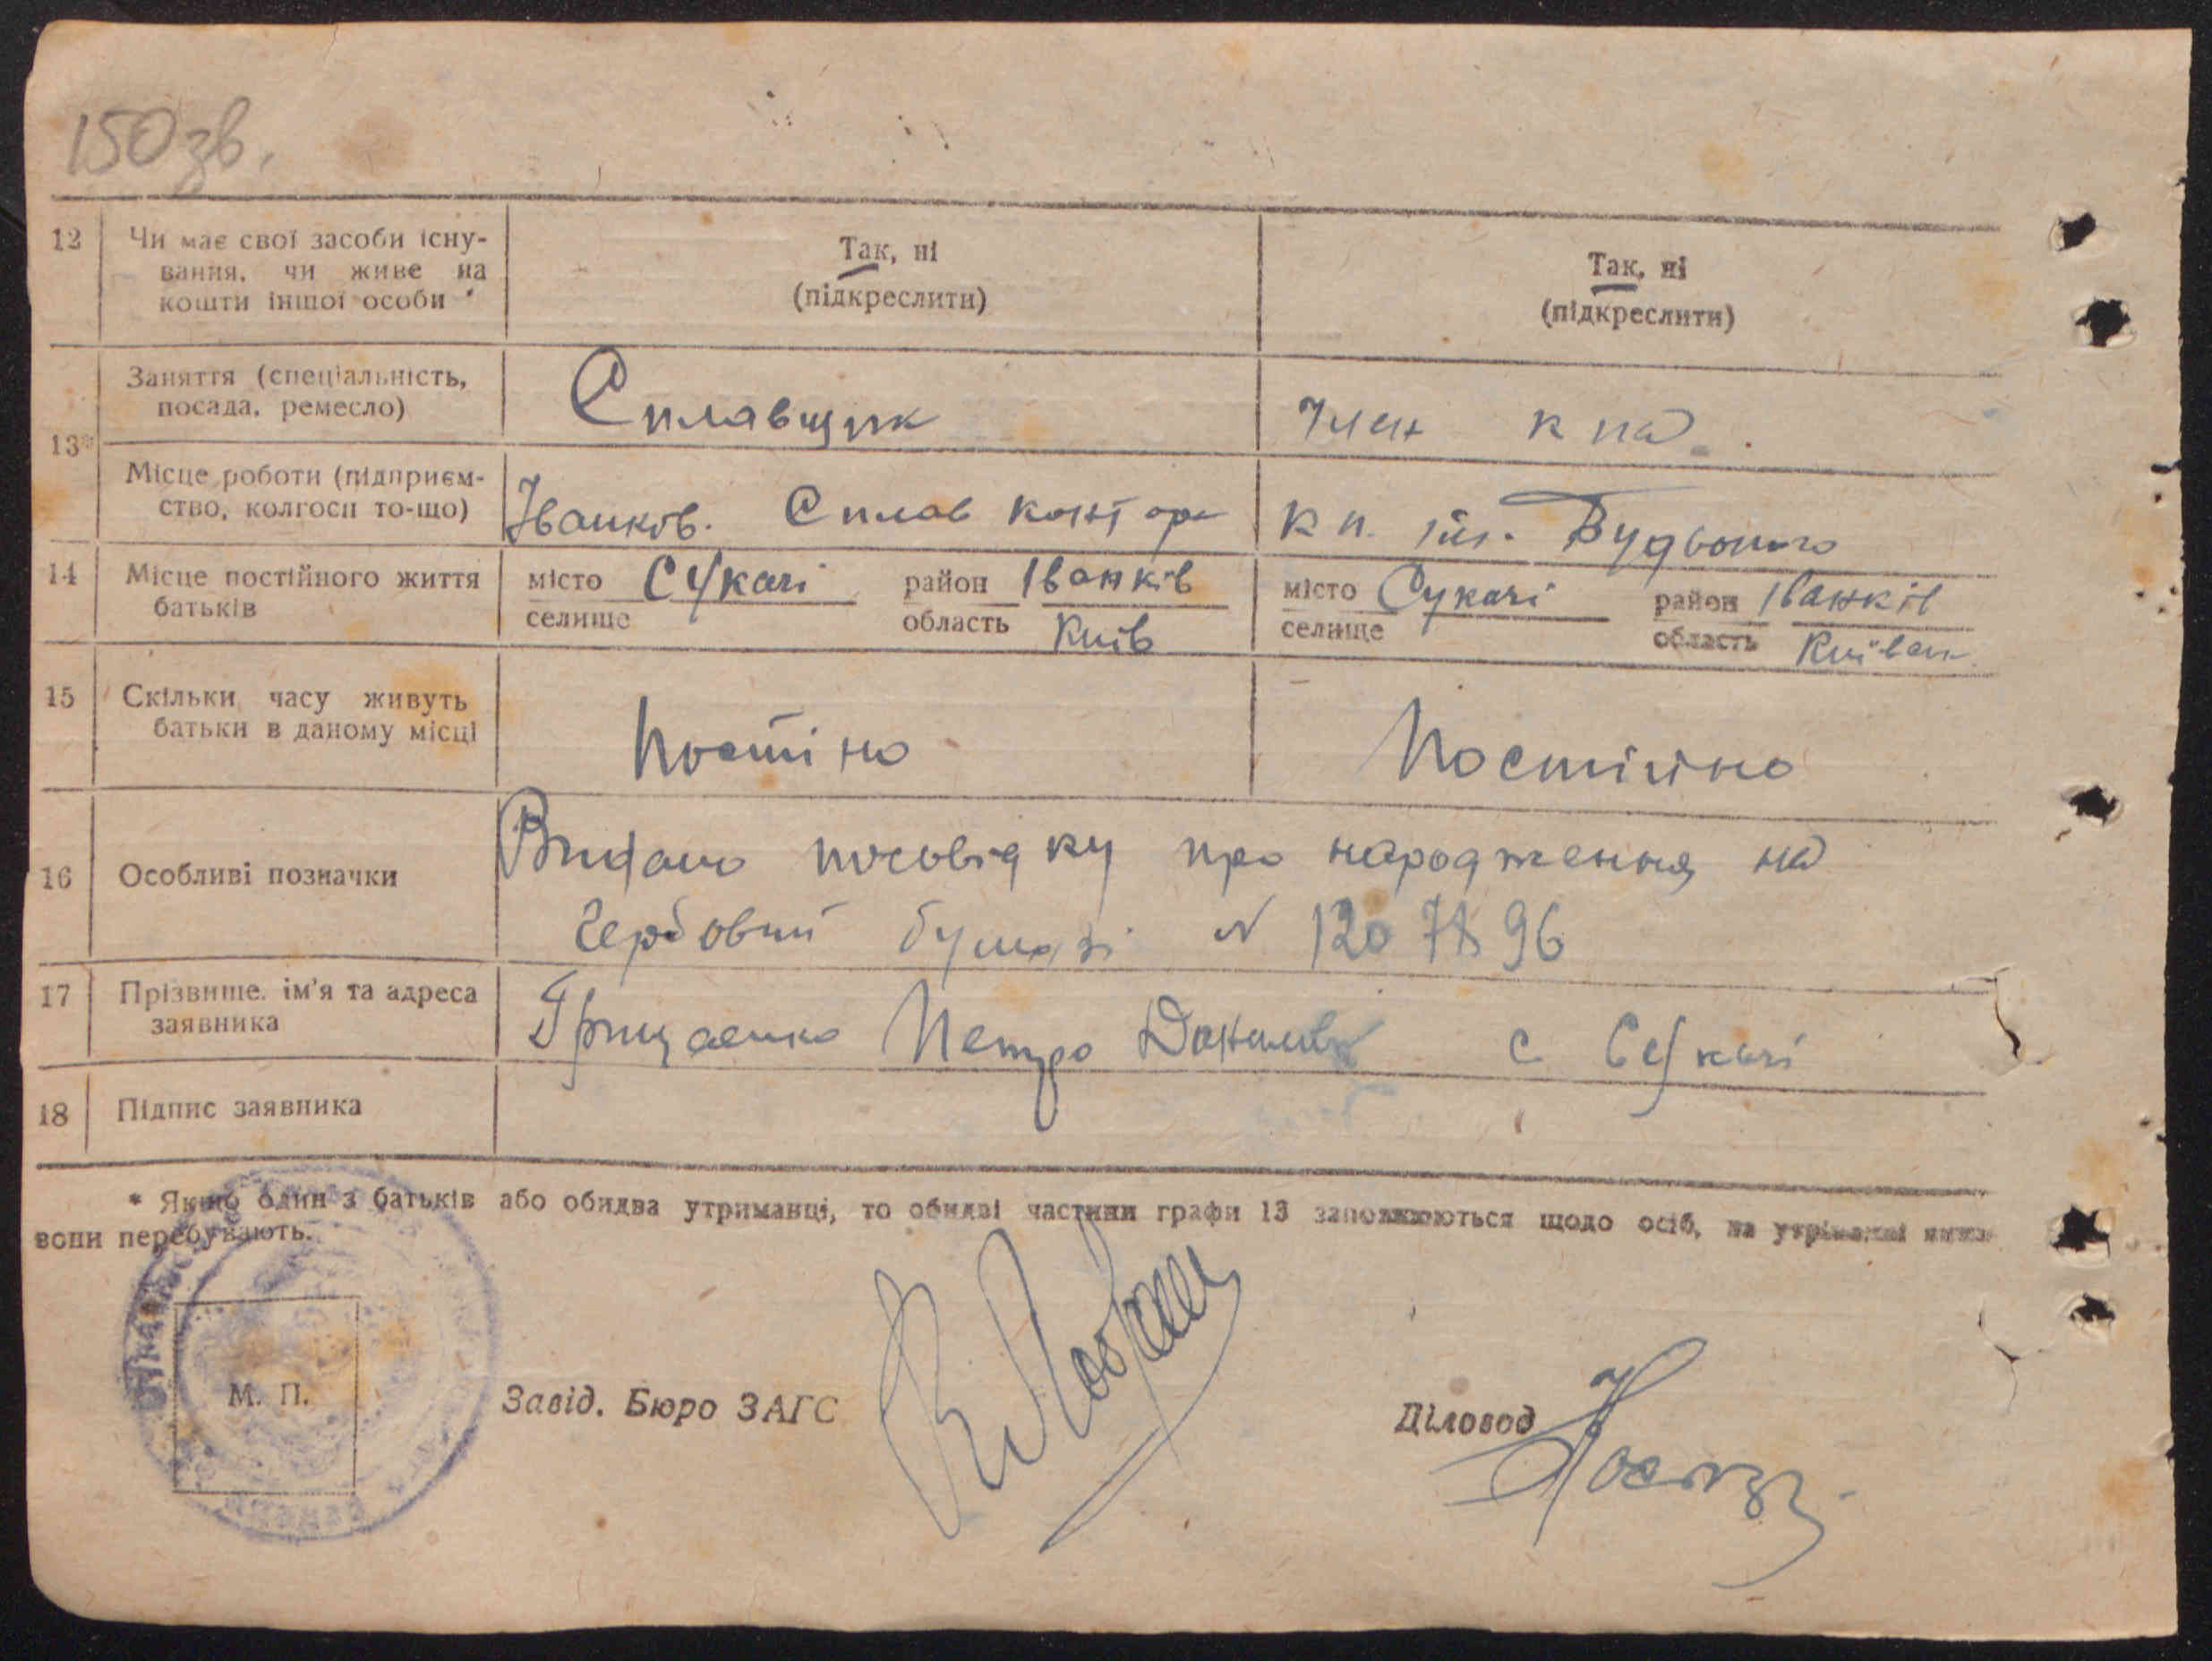 150 зв.
12 Чи має свої засоби існу-
вання, чи живе на
кошти іншої особи
Так, ні
(підкреслити)
Так, ні
(підкреслити)
13*
Заняття (спеціальність,
посада, ремесло)
Сплавщик
Член к па
Місце роботи (підприєм-
ство, колгосп то-що)
Іванков. Сплав контора
к п. ім. Будьоного
14 Місце постійного життя
батьків
місто Сукачі район Іванків
селище область Київ
місто Сукачі район Іванків
селище область Київськ
15 Скільки часу живуть
батьки в даному місці
Постіно
Постійно
16 Особливі позначки
Видано посовідку про народження на
гербовий бумазі № 120
96
17 Прізвище, ім'я та адреса
заявника
Грищенко Петро Данилов с Сукачі
18 Підпис заявника
* Якщо один з батьків або обидва утриманці, то обидві частини графи 13 заповнюються щодо осіб, на утриманні яких
вони перебувають.
М. П.
Завід. Бюро ЗАГС
Діловод